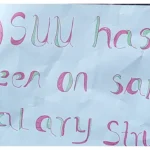 ) SUU has
een on sa
alary Stru